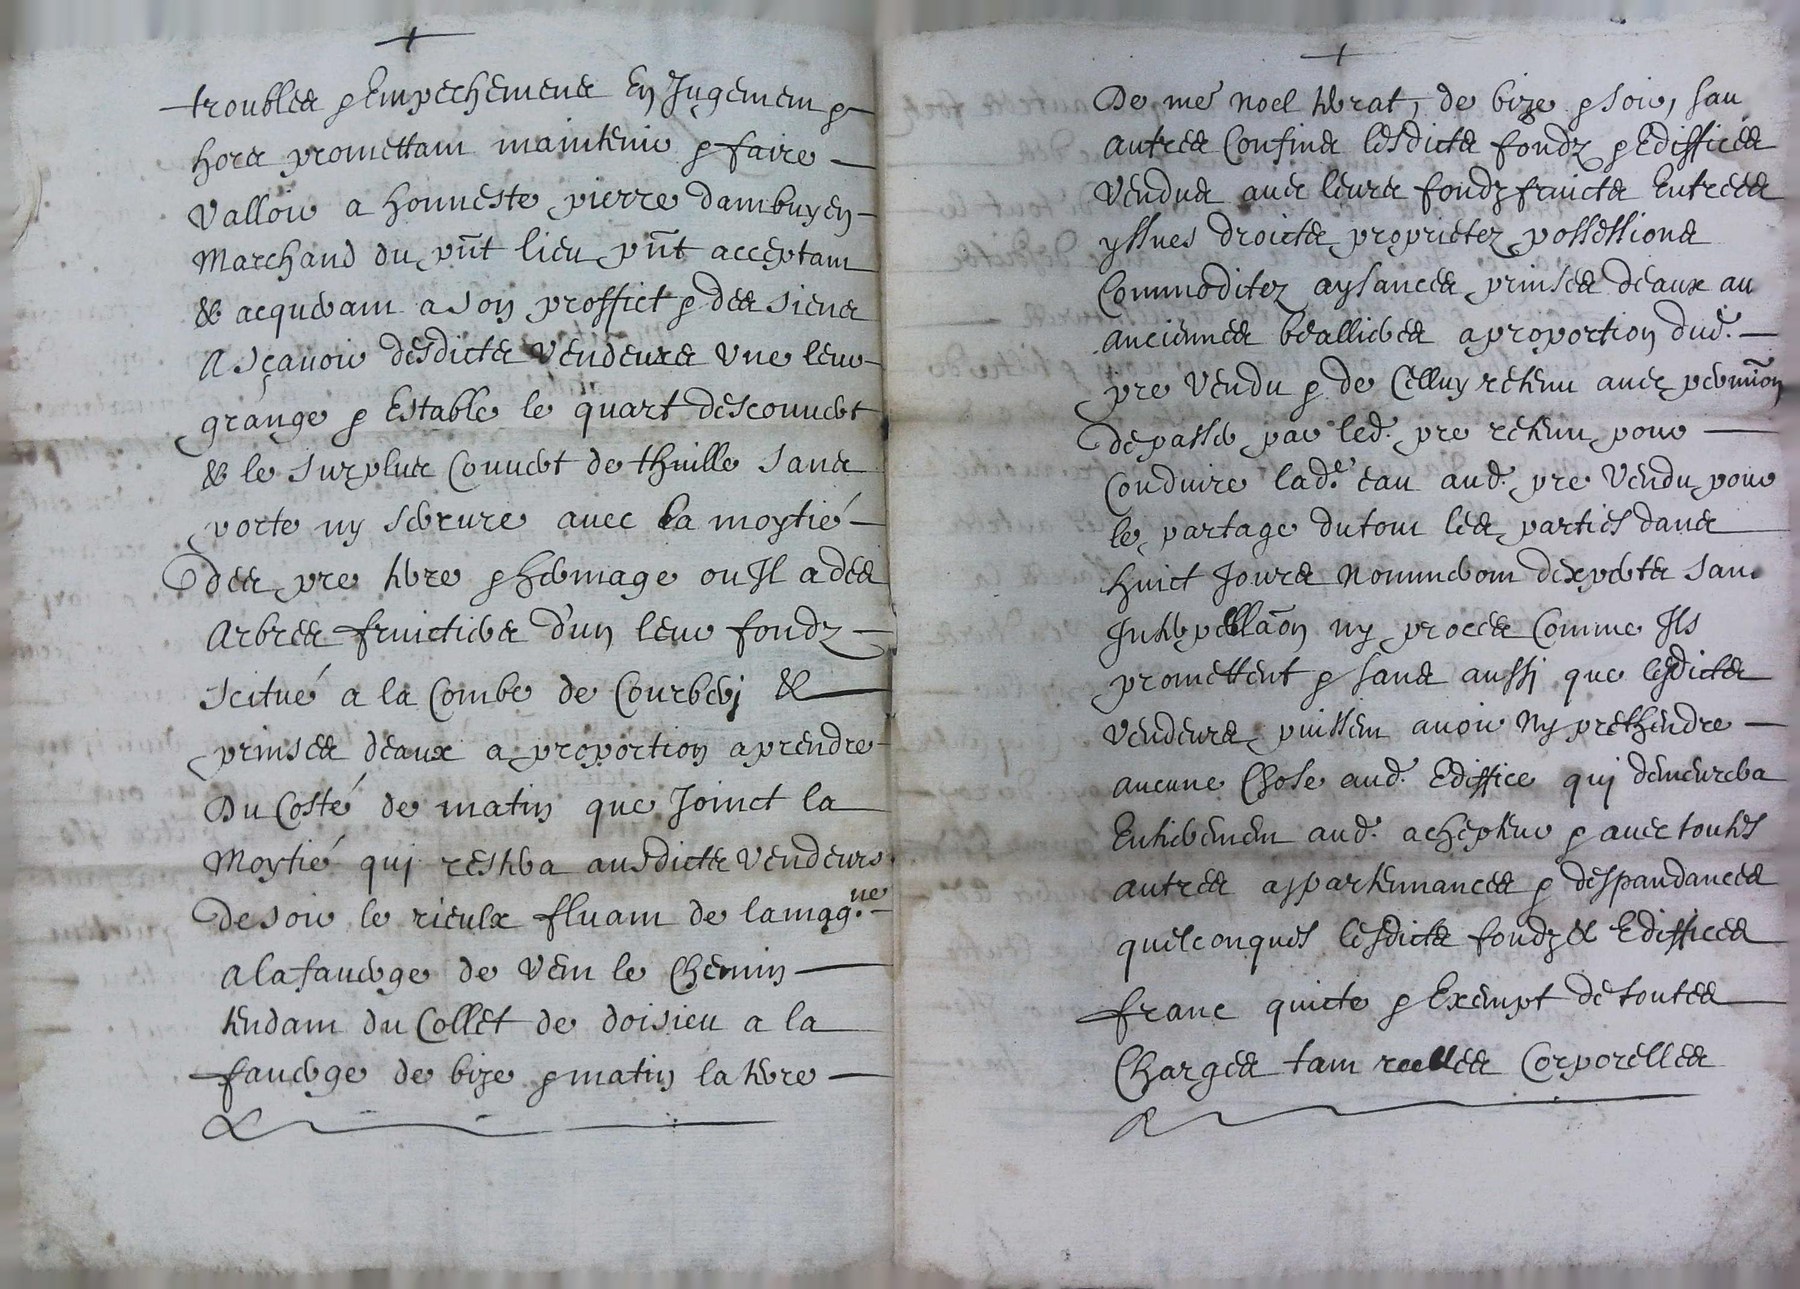 troubles & Empechements En Jugement &
hors promettant maintenir & faire
Valloir a honneste pierre dambuyen
Marchand du pñt lieu pñt acceptant
& acquerant a son proffict & des siens
Asçavoir desdicts Vendeurs Une leur
grange & Estable le quart descouuert
& le surplus Couuert de thuille sans
porte ny serrure auec La moytié
des pre terre & hermage ou Il a des
Arbres fruictiers d'un leur fondz
scitué a la Combe de Courberj &
prinses deaux a proportion aprendre
Du Costé de matin que Joinct la
Moytié qui restera ausdicts Vendeurs
de soir le rieulx fluant de lamagne
A la fauerge de Vent le Chemin
tendant du Collet de doisieu a la
fauerge de bize & matin la terre
De me noel terat, de bize & soir, sauf
autres Confins lesdicts fondz & Ediffices
Vendus auec leurs fondz fruicts Entrees
yssues droicts proprietez possessions
Commoditez aysances prinses deaux au
anciennes beallieres a proportion dud.
pre Vendu & de Celluy retenu auec permiõn
de passer par led. pre retenu pour
Conduire lad.e eau aud. pre Vendu pour
le partage dutout les parties dans
huict Jours Nommeront dexperts sans
Interpellãon ny proces Comme Ils
promettent & sans aussj que lesdicts
Vendeurs puissent auoir Ny prethendre
aucune Chose aud. Ediffice quj demeurera
Entierement aud. achepteur & auec toutes
autres appartennances & despandances
quelconques lesdicts fondz & Ediffices
franc quicte & Exempt de toutes
Charges tant reelles Corporelles